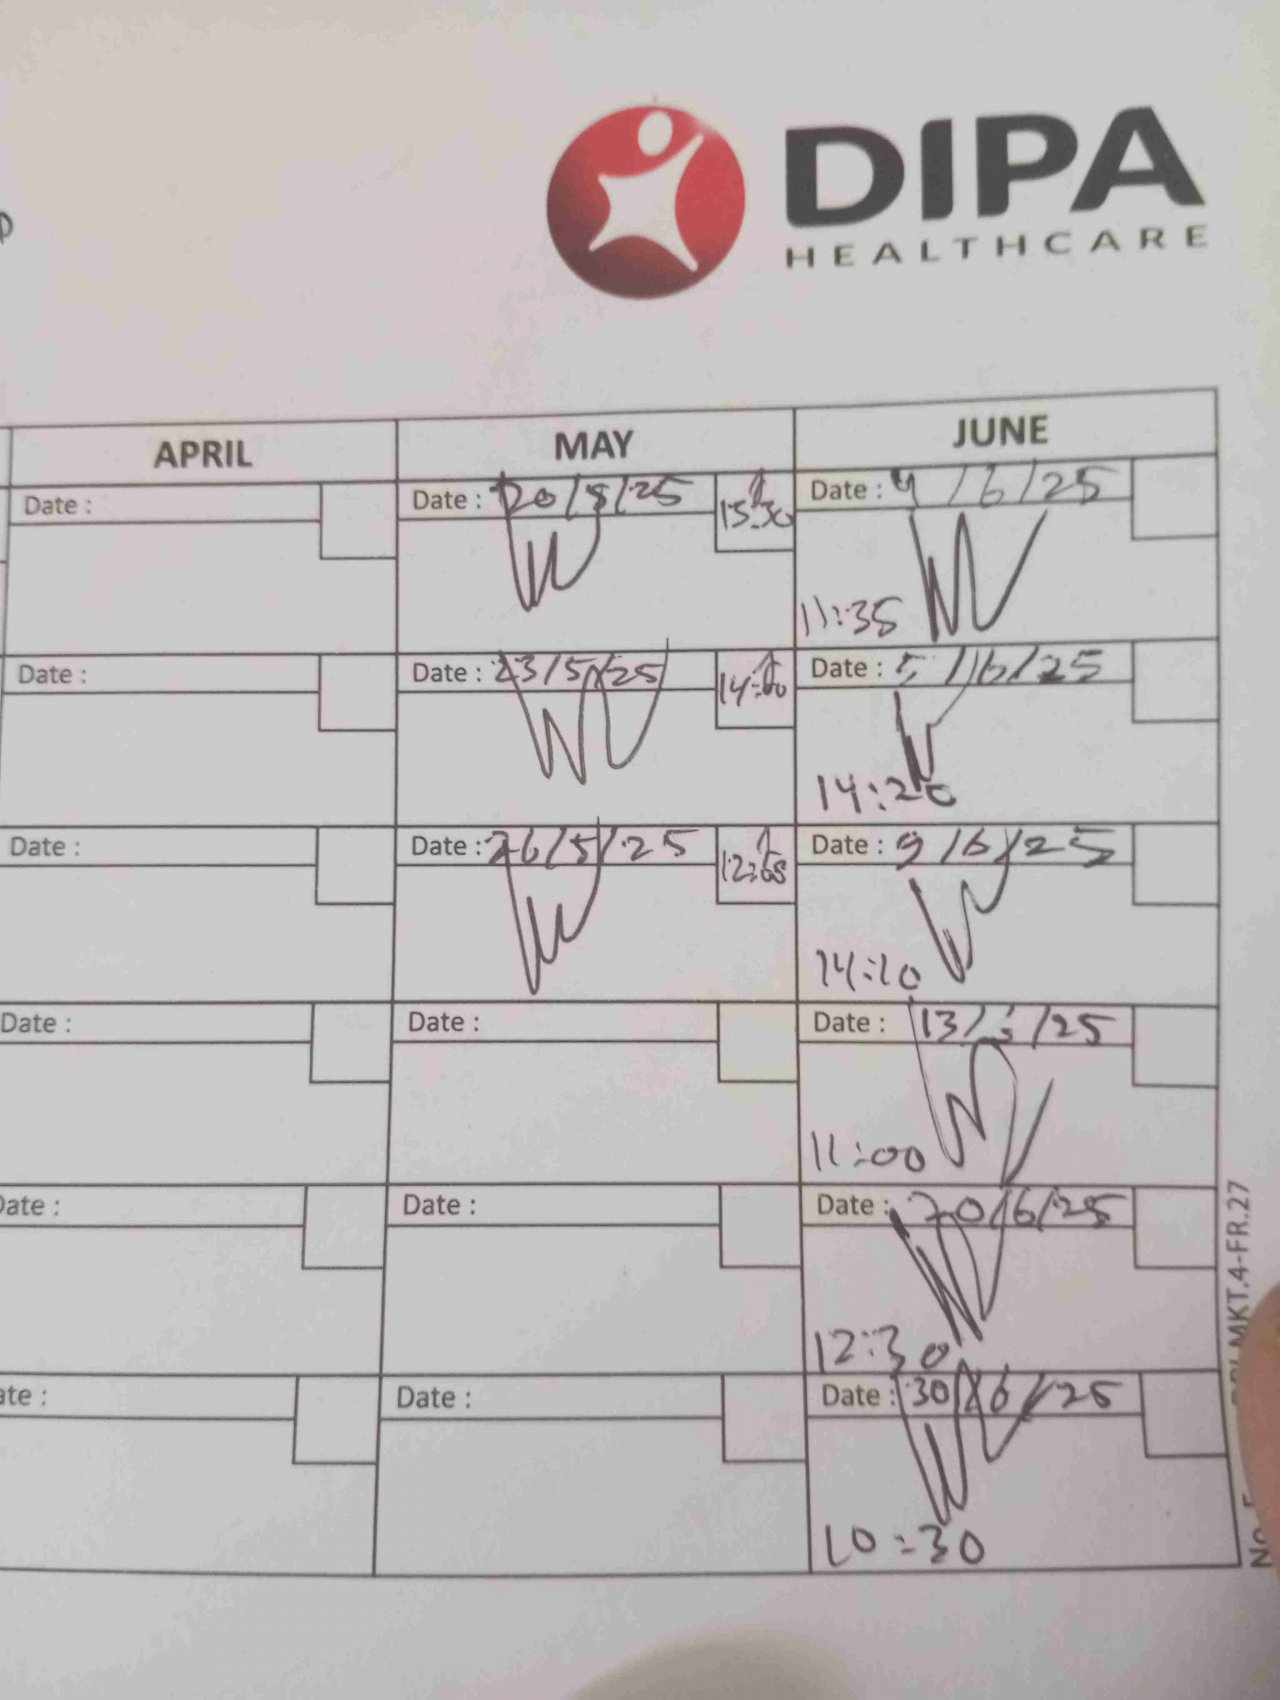 DIPA
HEALTHCARE
APRIL MAY JUNE
Date : Date : 20/5/25 15:30 Date : 4/6/25
11:35
Date : Date : 23/5/25 14:00 Date : 5/6/25
14:20
Date : Date : 26/5/25 Date : 9/6/25
14:10
Date : Date : Date : 13/6/25
11:00
Date : Date : Date : 20/6/25
12:30
ate : Date : Date : 30/6/25
10:30
MKT.4-FR.27